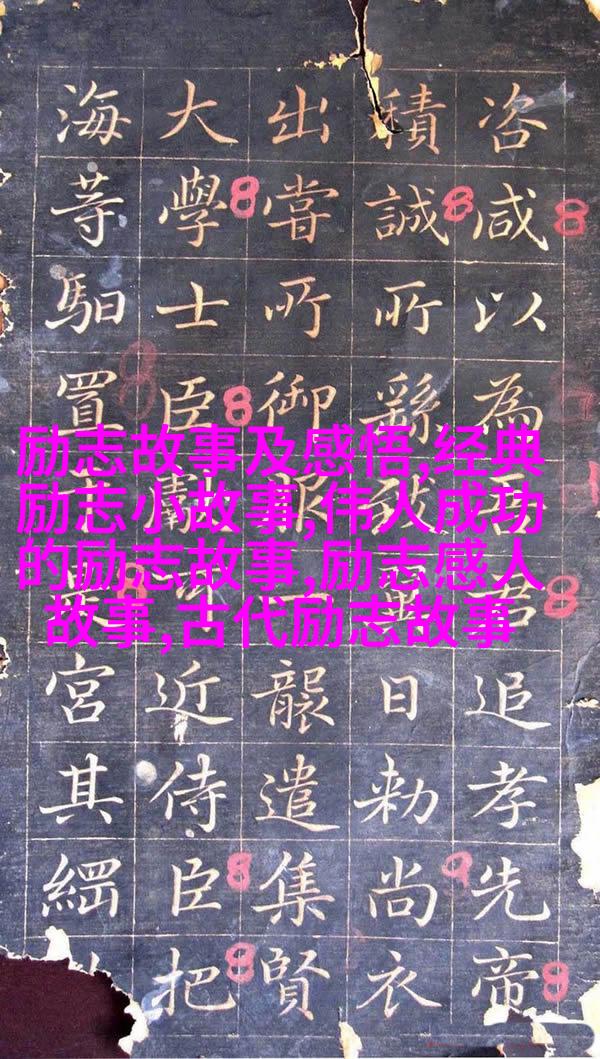 咨咸以為吾君追孝先帝
積誠所繇致日勑尚衣
出嘗所御服一襲遣集賢
大學士臣近侍臣把
海等馹置宮其
励志故事及感悟,经典
励志小故事,伟人成功
的励志故事,励志感人
故事,古代励志故事